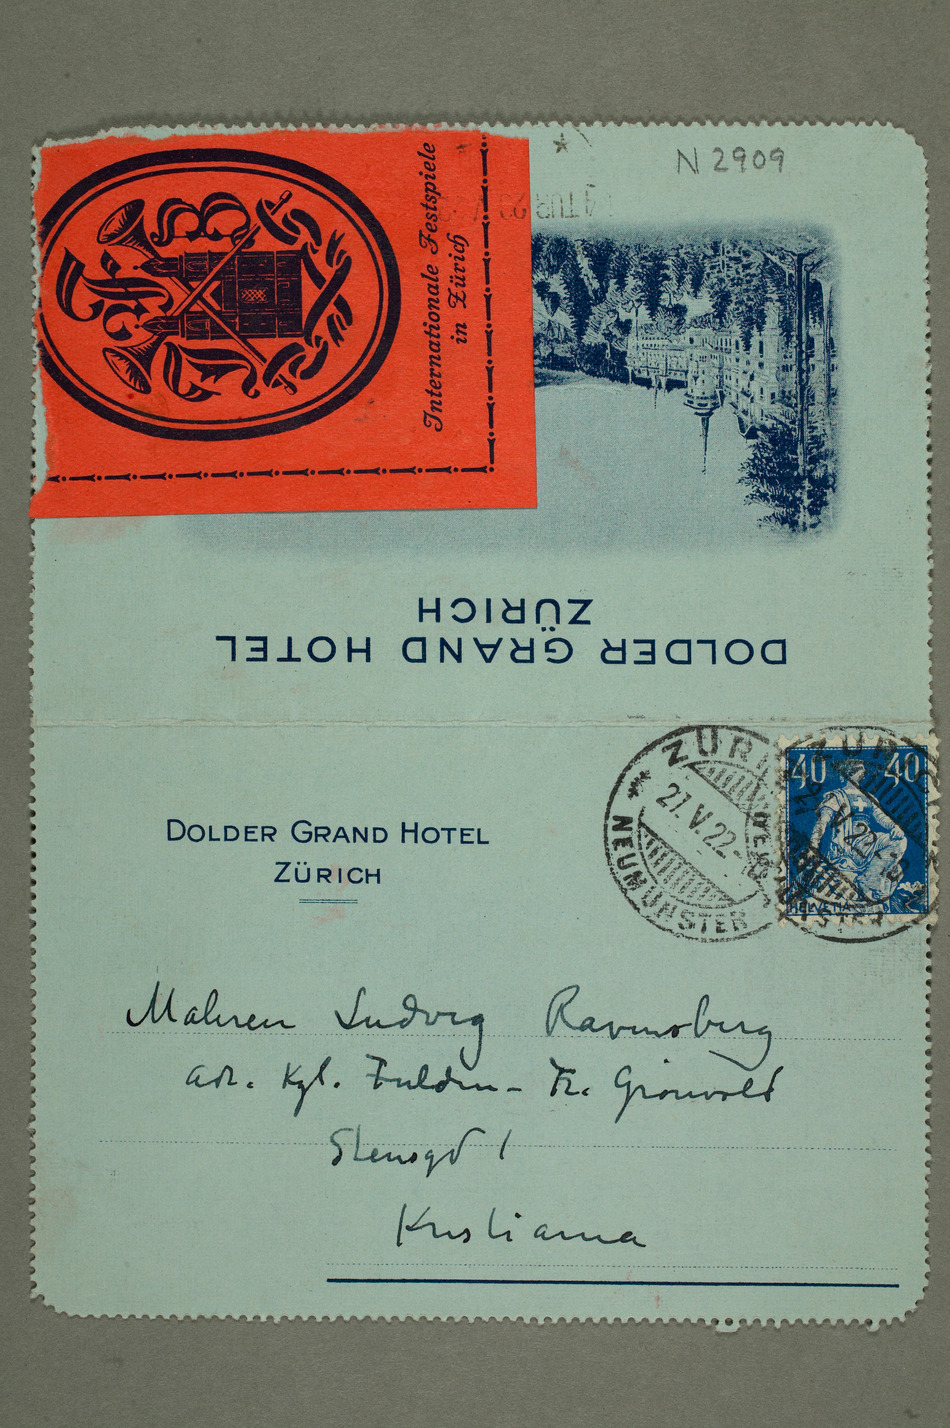 N 2909
Internationale Festspiele
in Zürich
DOLDER GRAND HOTEL
ZÜRICH
ZÜRICH
27.V.22.
NEUMÜNSTER
40 40
HELVETIA
DOLDER GRAND HOTEL
ZÜRICH
Maleren Ludvig Ravensberg
adr. Kgl. Fuldm - Fr. Grönvold
Stensgd 1
Kristiania